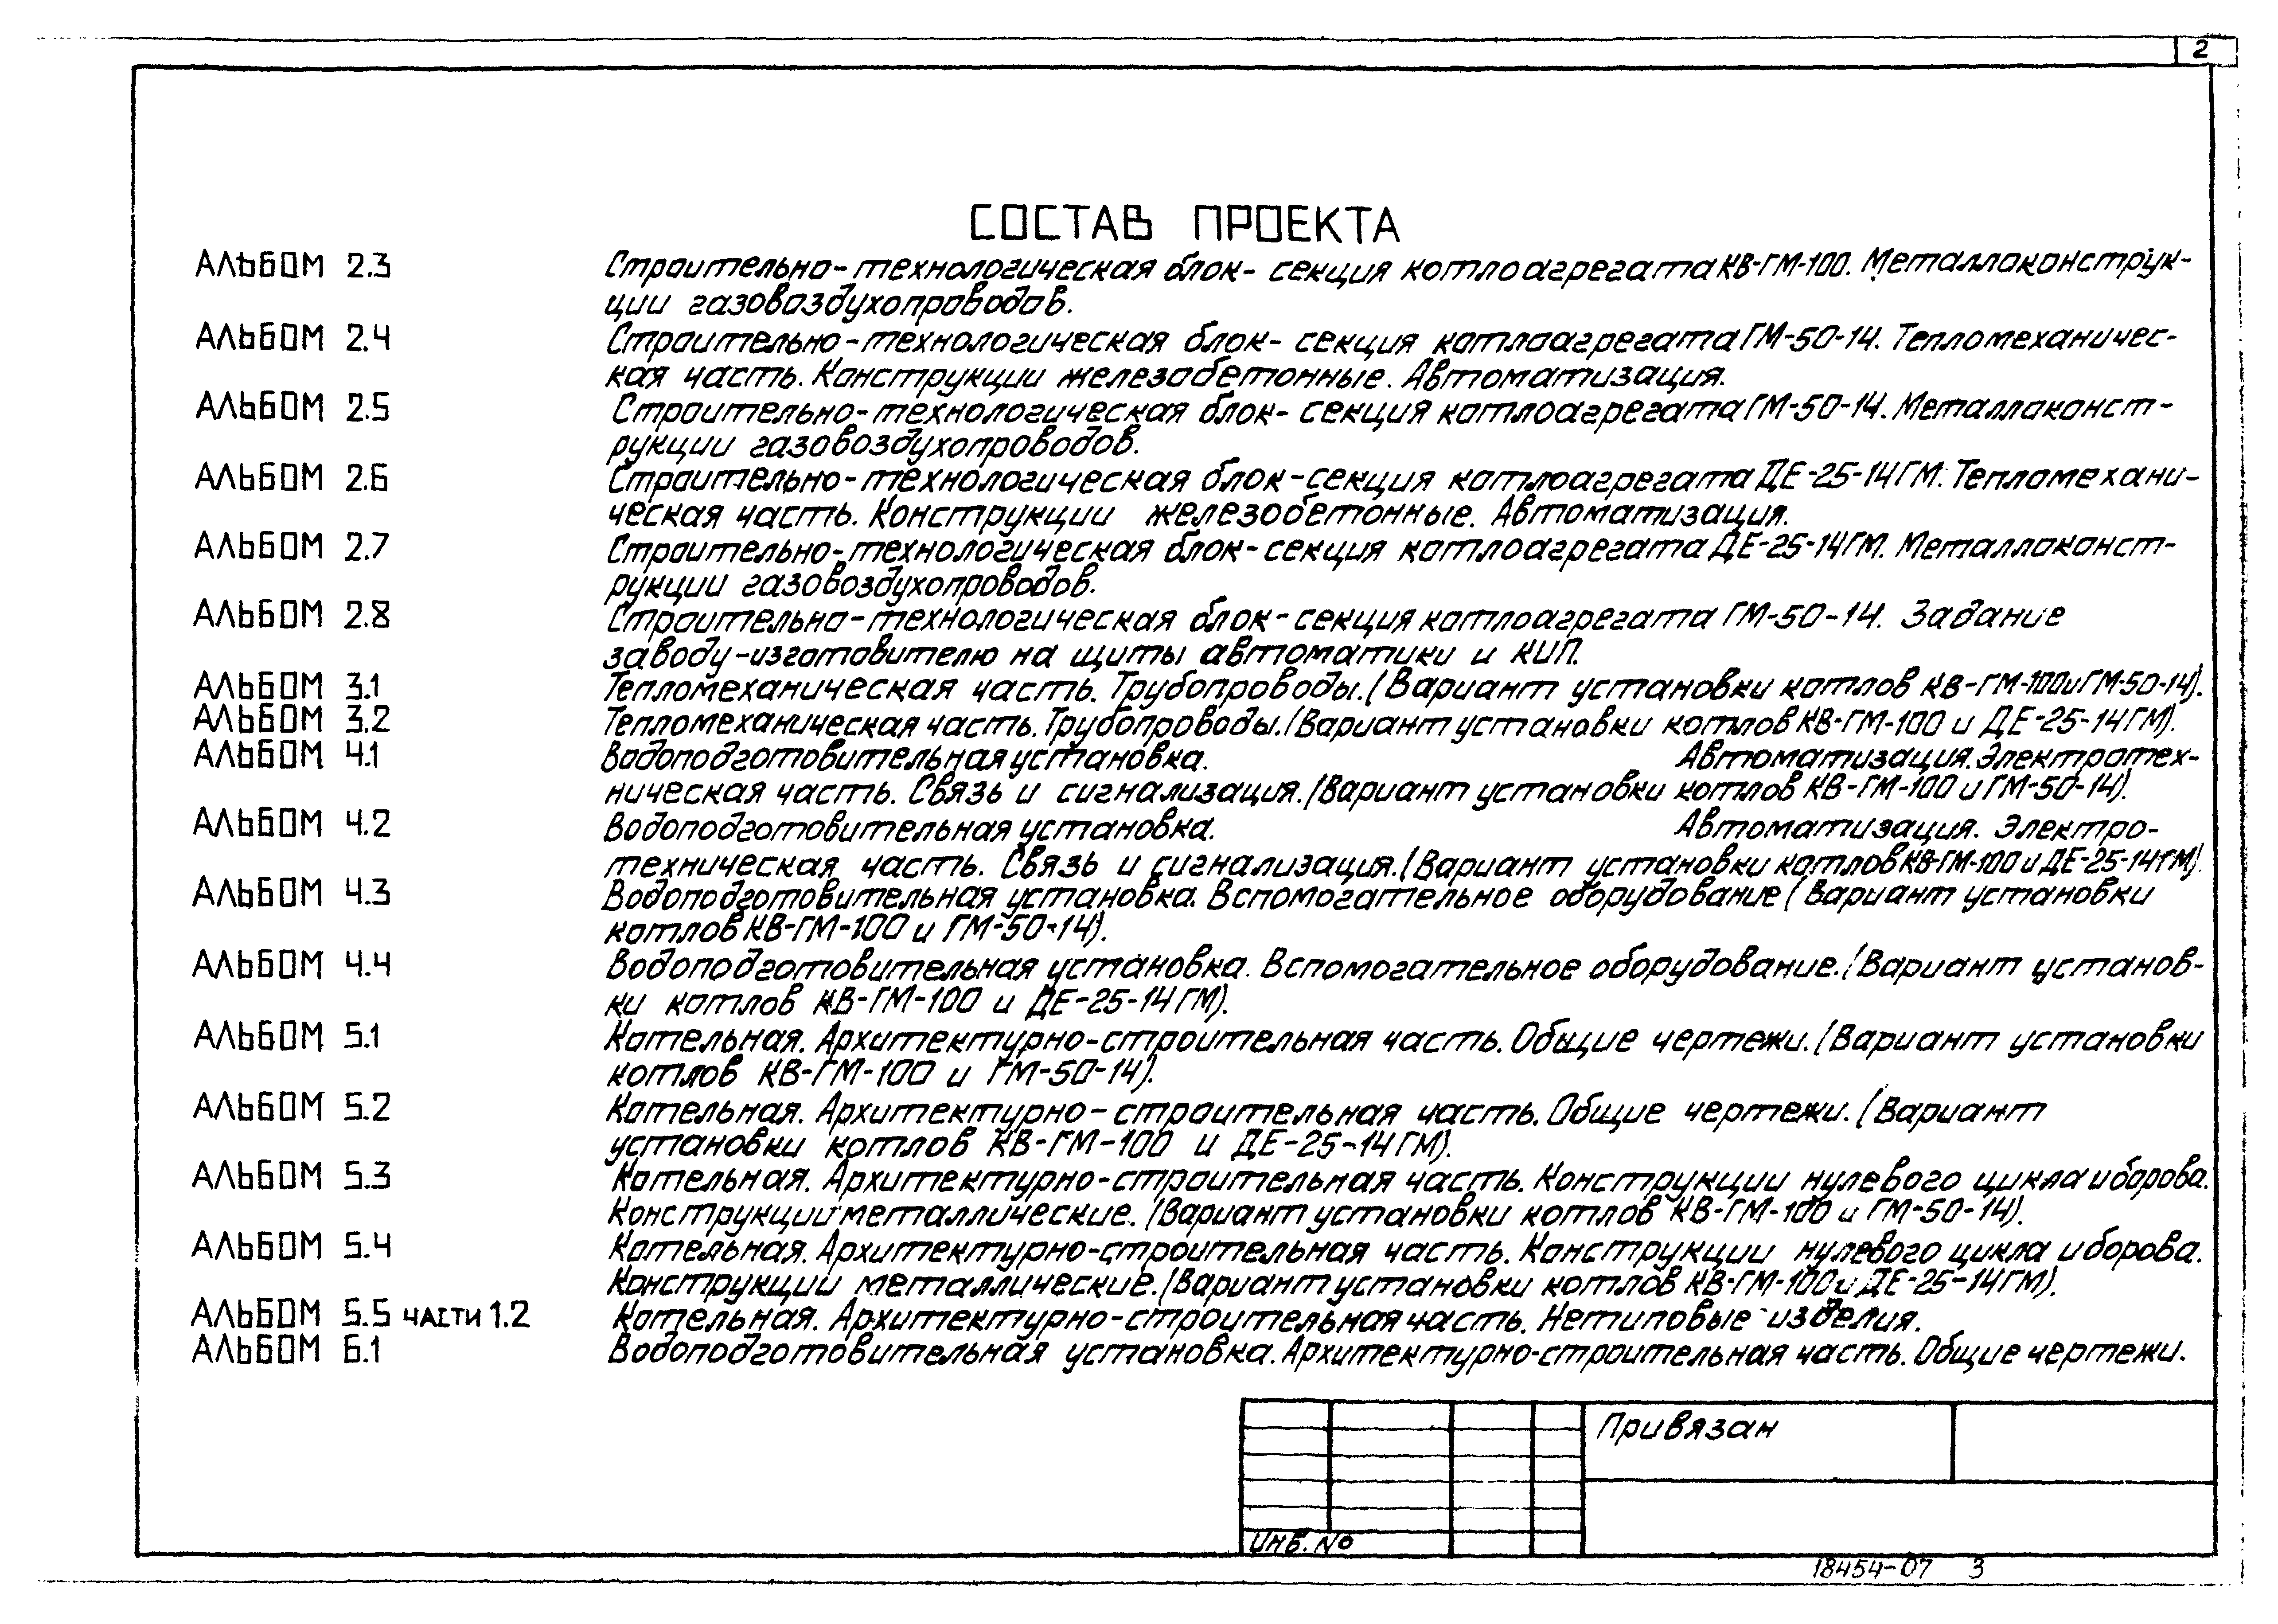 2
СОСТАВ ПРОЕКТА
АЛЬБОМ 2.3 Строительно-технологическая блок-секция котлоагрегата КВ-ГМ-100. Металлоконструк-
ции газовоздухопроводов.
АЛЬБОМ 2.4 Строительно-технологическая блок-секция котлоагрегата ГМ-50-14. Тепломеханичес-
кая часть. Конструкции железобетонные. Автоматизация.
АЛЬБОМ 2.5 Строительно-технологическая блок-секция котлоагрегата ГМ-50-14. Металлоконст-
рукции газовоздухопроводов.
АЛЬБОМ 2.6 Строительно-технологическая блок-секция котлоагрегата ДЕ-25-14ГМ. Тепломехани-
ческая часть. Конструкции железобетонные. Автоматизация.
АЛЬБОМ 2.7 Строительно-технологическая блок-секция котлоагрегата ДЕ-25-14ГМ. Металлоконст-
рукции газовоздухопроводов.
АЛЬБОМ 2.8 Строительно-технологическая блок-секция котлоагрегата ГМ-50-14. Задание
заводу-изготовителю на щиты автоматики и КИП.
АЛЬБОМ 3.1 Тепломеханическая часть. Трубопроводы. (Вариант установки котлов КВ-ГМ-100 и ГМ-50-14).
АЛЬБОМ 3.2 Тепломеханическая часть. Трубопроводы. (Вариант установки котлов КВ-ГМ-100 и ДЕ-25-14ГМ).
АЛЬБОМ 4.1 Водоподготовительная установка. Автоматизация. Электротех-
ническая часть. Связь и сигнализация. (Вариант установки котлов КВ-ГМ-100 и ГМ-50-14).
АЛЬБОМ 4.2 Водоподготовительная установка. Автоматизация. Электро-
техническая часть. Связь и сигнализация. (Вариант установки котлов КВ-ГМ-100 и ДЕ-25-14ГМ).
АЛЬБОМ 4.3 Водоподготовительная установка. Вспомогательное оборудование (Вариант установки
котлов КВ-ГМ-100 и ГМ-50-14).
АЛЬБОМ 4.4 Водоподготовительная установка. Вспомогательное оборудование. (Вариант установ-
ки котлов КВ-ГМ-100 и ДЕ-25-14ГМ).
АЛЬБОМ 5.1 Котельная. Архитектурно-строительная часть. Общие чертежи. (Вариант установки
котлов КВ-ГМ-100 и ГМ-50-14).
АЛЬБОМ 5.2 Котельная. Архитектурно-строительная часть. Общие чертежи. (Вариант
установки котлов КВ-ГМ-100 и ДЕ-25-14ГМ).
АЛЬБОМ 5.3 Котельная. Архитектурно-строительная часть. Конструкции нулевого цикла и борова.
Конструкции металлические. (Вариант установки котлов КВ-ГМ-100 и ГМ-50-14).
АЛЬБОМ 5.4 Котельная. Архитектурно-строительная часть. Конструкции нулевого цикла и борова.
Конструкции металлические. (Вариант установки котлов КВ-ГМ-100 и ДЕ-25-14ГМ).
АЛЬБОМ 5.5 ЧАСТИ 1.2 Котельная. Архитектурно-строительная часть. Нетиповые изделия.
АЛЬБОМ 6.1 Водоподготовительная установка. Архитектурно-строительная часть. Общие чертежи.
Привязан
ИНВ. №
18454-07 3